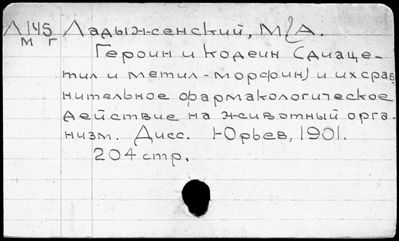 Л145 Ладыженский, М/А.
м г
Героин и кодеин (диаце-
тил и метил-морфин) и их срав
нительное фармакологическое
действие на животный орга-
низм. Дисс. Юрьев, 1901.
204 стр.